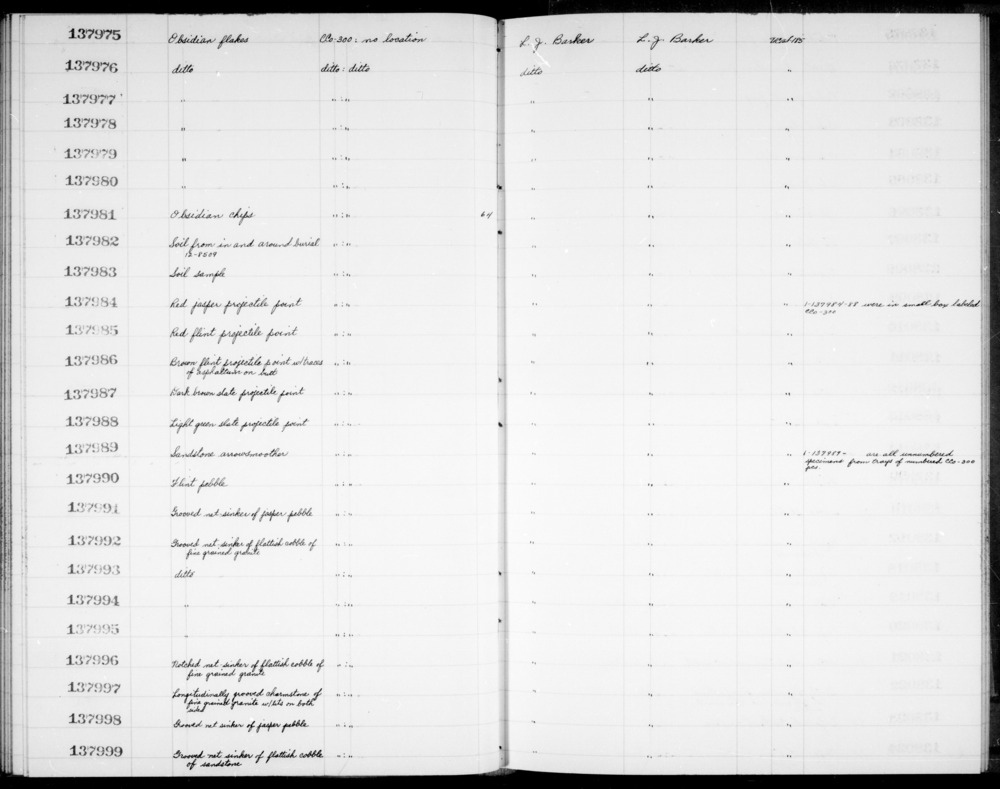 137975 Obsidian flakes CCo-300: no location L. J. Barker L. J. Barker
137976 ditto ditto: ditto ditto ditto "
137977 " " : " " " "
137978 " " : " " " "
137979 " " : " " " "
137980 " " : " " " "
137981 Obsidian chips " : " 64 " " "
137982 Soil from in and around burial " : " " " "
12-8509
137983 Soil sample " : " " " "
137984 Red jasper projectile point " : " " " " 1-137984-88 were in small box labeled
CCo-300
137985 Red flint projectile point " : " " " "
137986 Brown flint projectile point w/traces " : " " " "
of asphaltum on butt
137987 Dark brown slate projectile point " : " " " "
137988 Light green slate projectile point " : " " " "
137989 Sandstone arrowsmoother " : " " " " 1-137989- are all unnumbered
specimens from trays of numbered CCo-300
pcs.
137990 Flint pebble " : " " " "
137991 Grooved net sinker of jasper pebble " : " " " "
137992 Grooved net sinker of flattish cobble of " : " " " "
fine grained granite
137993 ditto " : " " " "
137994 " " : " " " "
137995 " " : " " " "
137996 Notched net sinker of flattish cobble of " : " " " "
fine grained granite
137997 Longitudinally grooved charmstone of " : " " " "
fine grained granite w/ on both
sides
137998 Grooved net sinker of jasper pebble " : " " " "
137999 Grooved net sinker of flattish cobble " : " " " "
of sandstone